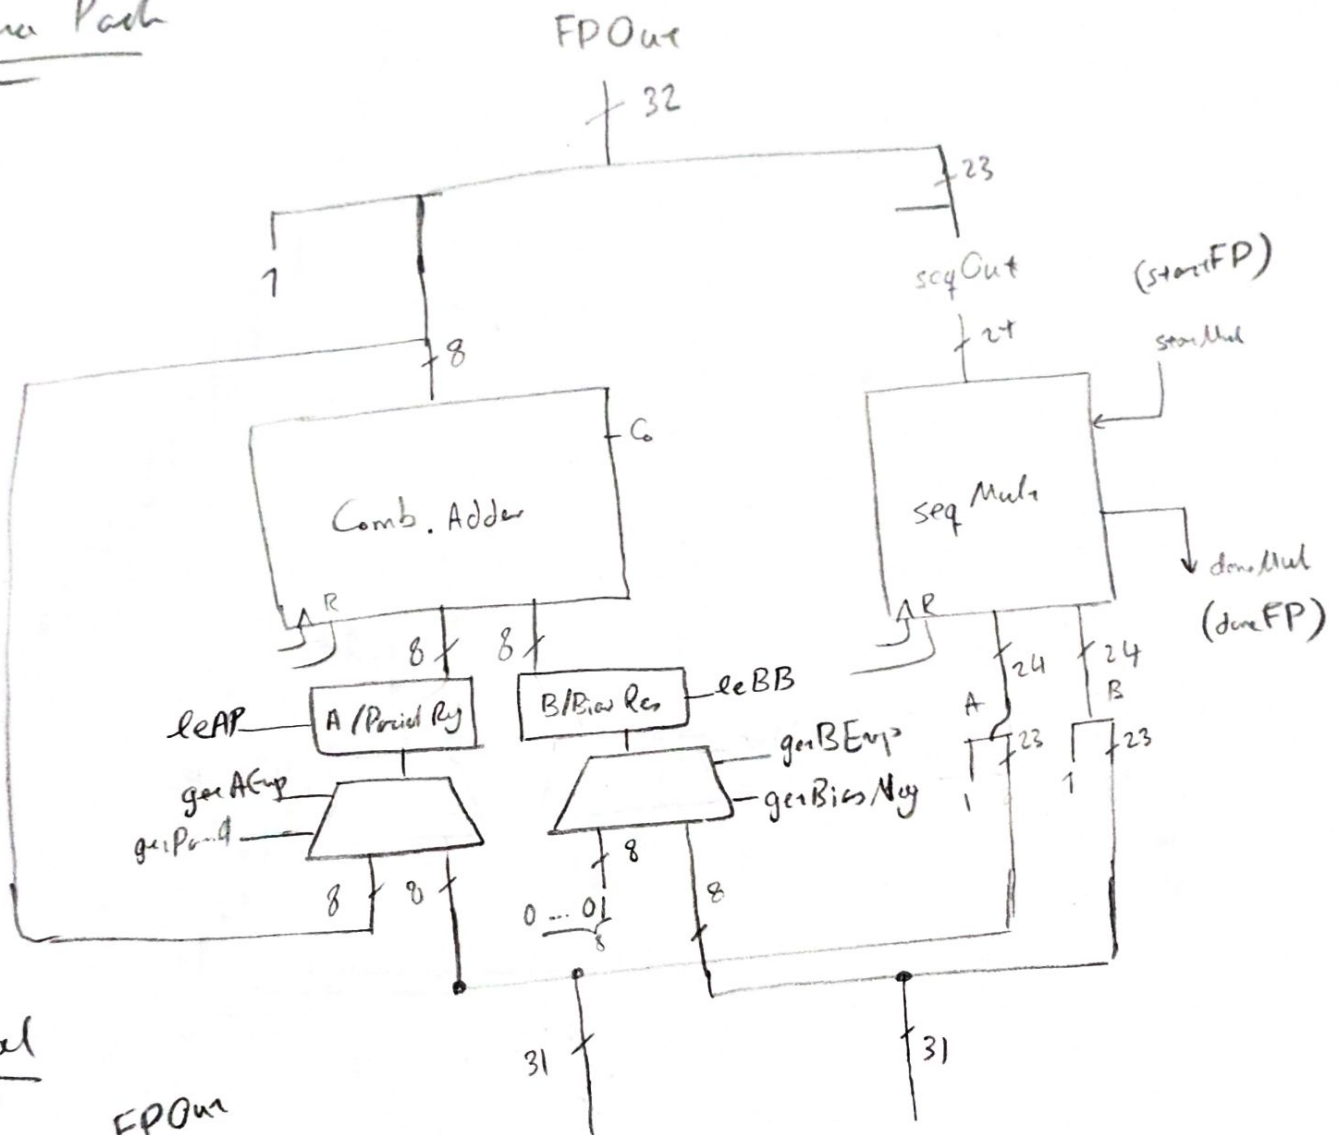 Path
FPOut
32
23
1
seqOut
(startFP)
24
startMul
8
Co
Comb. Adder
seqMult
doneMul
(doneFP)
R
R
8
8
24
24
leAP
A/Partial Reg
B/Bias Res
leBB
A
B
23
23
1
1
getAExp
getBExp
getBiasNeg
8
8
8
8
0 ... 01
8
31
31
FPOut